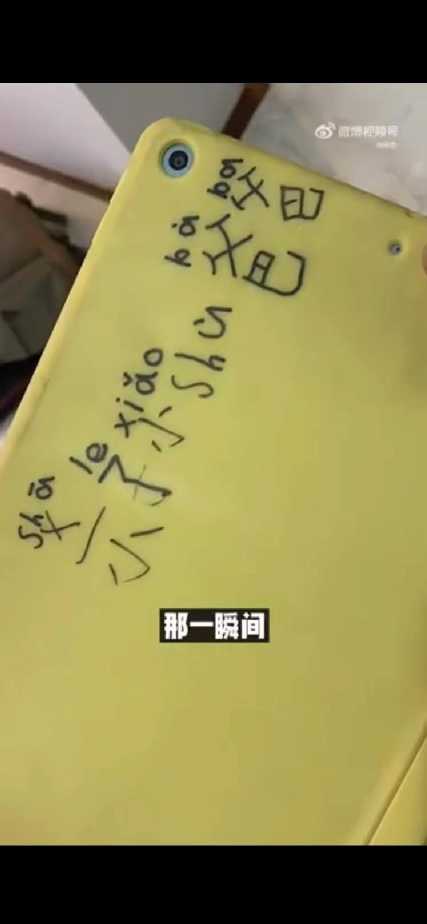 微博视频号
shā le xiǎo bà bà
杀了小shù爸爸
那一瞬间